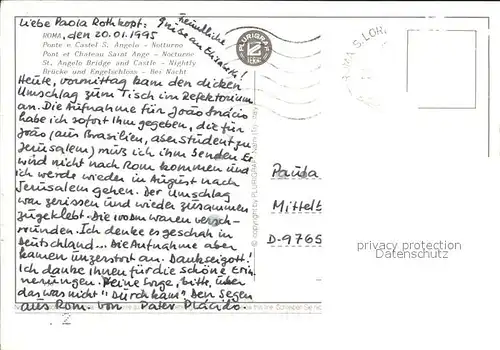 Liebe Paola Rothkopf:
freundliche
Grüße an Elisabeth!
ROMA, den 20.01.1995
Ponte e Castel S. Angelo - Notturno
Pont et Chateau Saint Ange - Nocturne
St. Angelo Bridge and Castle - Nightly
Brücke und Engelschloss - Bei Nacht
Heute, vormittag kam den dicken
Umschlag zum Tisch im Refektorium
an. Die Aufnahme für João Inácio
habe ich sofort Ihm gegeben, die für
João (aus Brasilien, aber student zu
Jerusalem) muß ich ihm senden. Er
wird nicht nach Rom kommen und
ich werde wieder in August nach
Jerusalem gehen. Der Umschlag
war zerissen und wieder zusammen
zugeklebt. Die 100DM waren versch-
wunden. Ich denke es geschah in
Deutschland... Die Aufnahme aber
kamen unzerstört an. Dankseigott!
Ich danke Ihnen für die schöne Erin
nerungen. Keine Sorge, bitte, über
das was nicht "durchkam". Den Segen
aus Rom. von Pater Plácido.
PLURIGRAF
© copyright by PLURIGRAF - Narni
ROMA S. LOR.
Paula
Mittelt
D-9765
privacy protection
Datenschutz
2